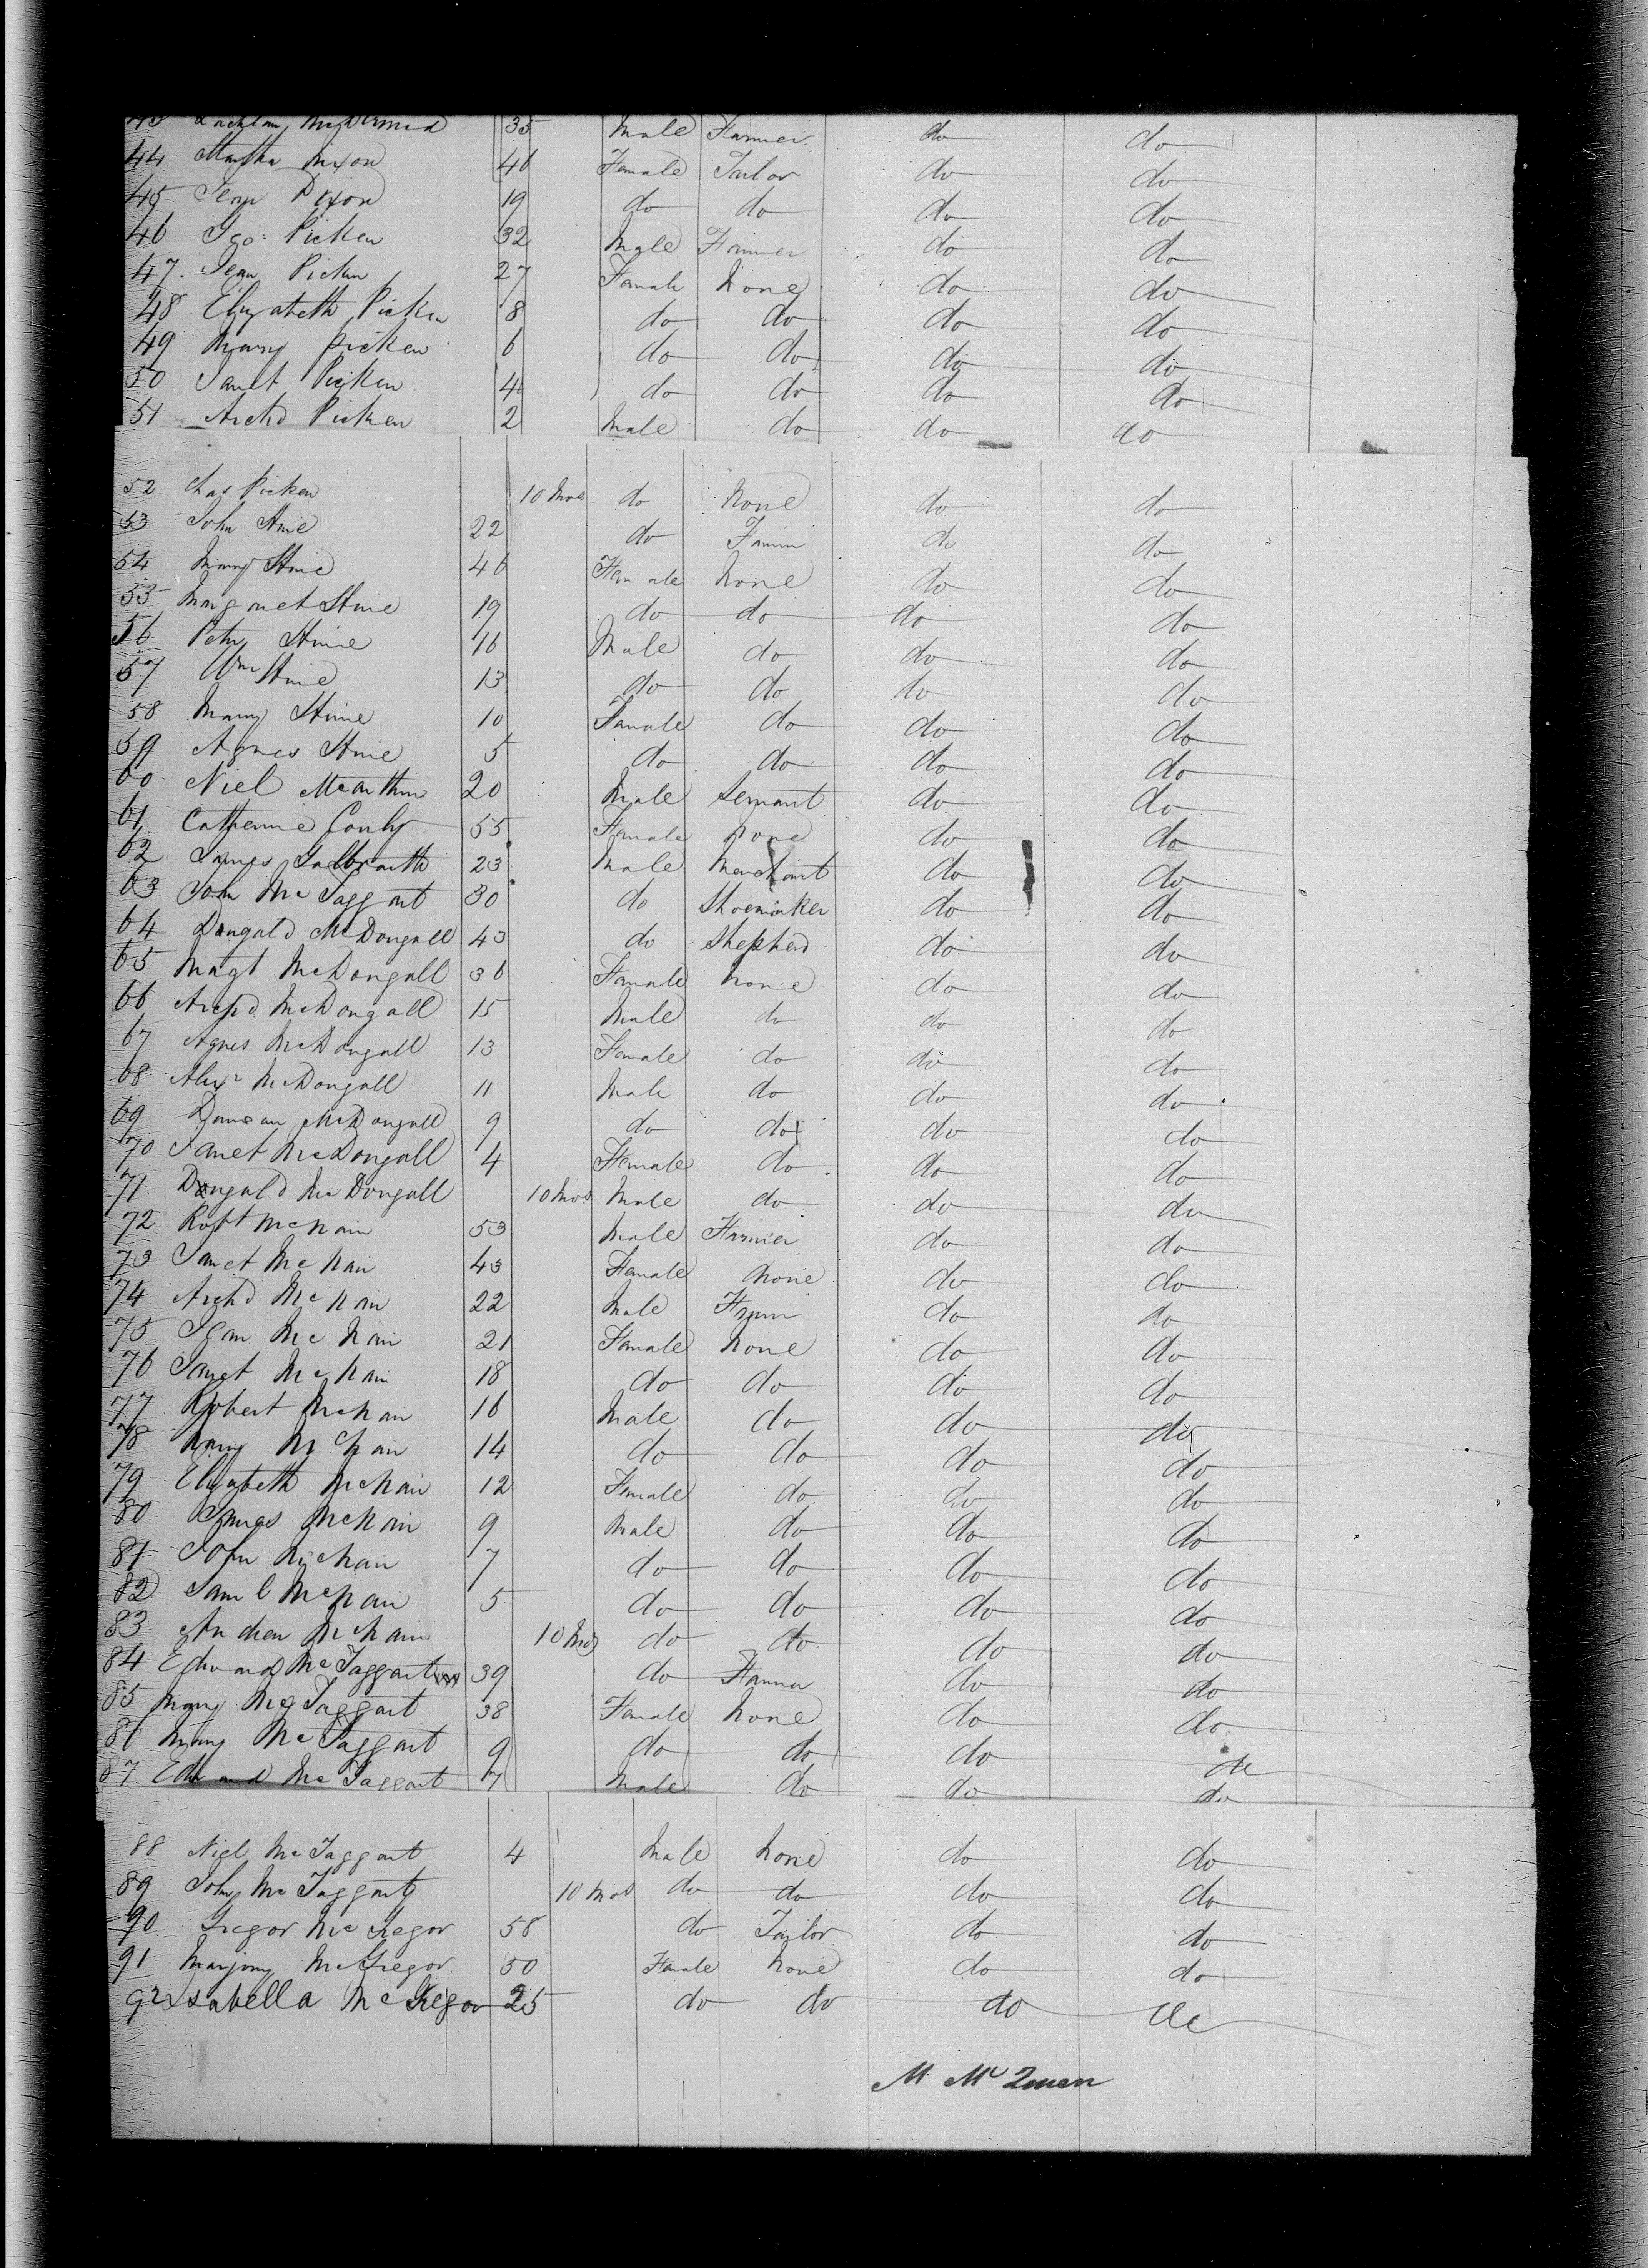 43 Lachlan McDermid 35 Male Farmer do do
44 Martha Dixon 46 Female Tailor do do
45 Jean Dixon 19 do do do do
46 Geo. Picken 32 Male Farmer do do
47. Jean Picken 27 Female None do do
48 Elizabeth Picken 8 do do do do
49 Mary Picken 6 do do do do
50 Janet Picken 4 do do do do
51 Archd Picken 2 Male do do do
52 Chas Picken 10 Mos do None do do
53 John 22 do Farmer do do
54 Mary 46 Female None do do
55 Margaret 19 do do do do
56 Peter 16 Male do do do
57 Wm 13 do do do do
58 Mary 10 Female do do do
59 Agnes 5 do do do do
60 Niel McArthur 20 Male Servant do do
61 Catherine Conly 55 Female None do do
62 James Galbraith 23 Male Merchant do do
63 John McTaggart 30 do Shoemaker do do
64 Dugald McDougall 43 do Shepherd do do
65 Magt McDougall 36 Female None do do
66 Archd McDougall 15 Male do do do
67 Agnes McDougall 13 Female do do do
68 Alexr McDougall 11 Male do do do
69 Duncan McDougall 9 do do do do
70 Janet McDougall 4 Female do do do
71 Dougald McDougall 10 Mos Male do do do
72 Robt McNair 53 Male Farmer do do
73 Janet McNair 43 Female None do do
74 Archd McNair 22 Male Farmer do do
75 Jean McNair 21 Female None do do
76 Janet McNair 18 do do do do
77 Robert McNair 16 Male do do do
78 McNair 14 do do do do
79 Elizabeth McNair 12 Female do do do
80 James McNair 9 Male do do do
81 John McNair 7 do do do do
82 Saml McNair 5 do do do do
83 Andrew McNair 10 Mos do do do do
84 Edward McTaggart 39 do Farmer do do
85 Mary McTaggart 38 Female None do do
86 Mary McTaggart 9 do do do do
87 Edward McTaggart 7 Male do do do
88 Niel McTaggart 4 Male None do do
89 John McTaggart 10 Mos do do do do
90 Gregor McGregor 58 do Tailor do do
91 Marjory McGregor 50 Female None do do
92 Isabella McGregor 25 do do do do
M McQueen